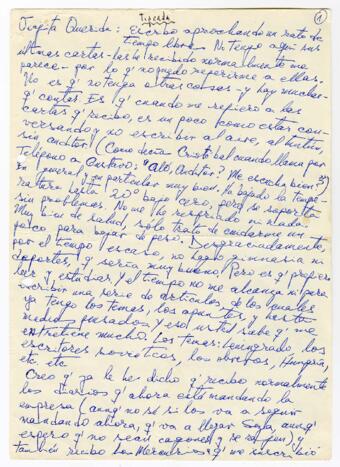 Tipeada
1
Jupita Querida: Escribo aprovechando un rato de
tiempo libre. No tengo aquí sus
últimas cartas - las he recibido normalmente me
parece - por lo q' no puedo referirme a ellas.
No es q' no tenga otras cosas - y hay muchas -
q' contar. Es q' cuando me refiero a las
cartas q' recibo, es un poco como estar con-
versando y no escribir al aire, al
sin auditor (Como decía Cristóbal cuando llama por
teléfono a Gustavo: "Aló, Auditor? Me escucha bien?")
En general y en particular muy bien. Ha bajado la tempe-
ratura hasta 20° bajo cero, pero se soporta
sin problemas. No me he resfriado ni nada.
Muy bien de salud, solo trato de cuidarme un
poco para bajar de peso. Desgraciadamente
por el tiempo escaso, no hago gimnasia ni
deportes, q' sería muy bueno. Pero es q' prefiero
leer y estudiar y el tiempo no me alcanza ni para
escribir una serie de artículos, de los cuales
ya tengo los temas, los apuntes, y hasta
medio pensados y eso usted sabe q' me
entretiene mucho. Los temas: Leningrado, los
escritores soviéticos, los obreros, Hungría,
etc. etc.
Creo q' ya le he dicho q' recibo normalmente
los diarios q' ahora está mandando la
empresa (aunq' no sé si los va a seguir
mandando ahora, q' va a llegar aunq'
espero q' no sean cagones y se) y
también recibo los Mercurios q' me suscribió